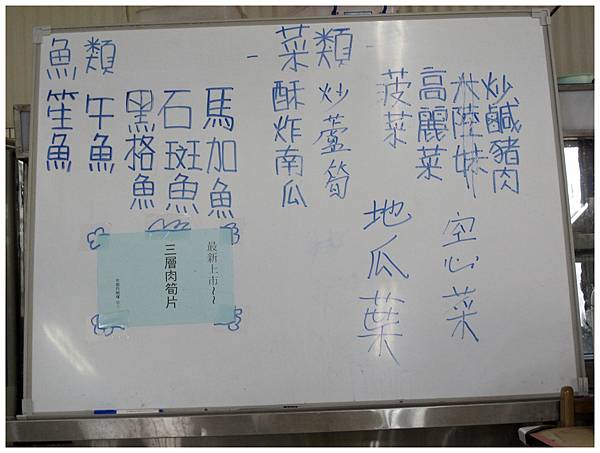 魚類
笙魚
午魚
黑格魚
石斑魚
馬加魚
-菜類-
酥炸南瓜
炒蘆筍
菠菜
高麗菜
大陸妹
炒鹹豬肉
地瓜葉
空心菜
最新上市~~
三層肉筍片